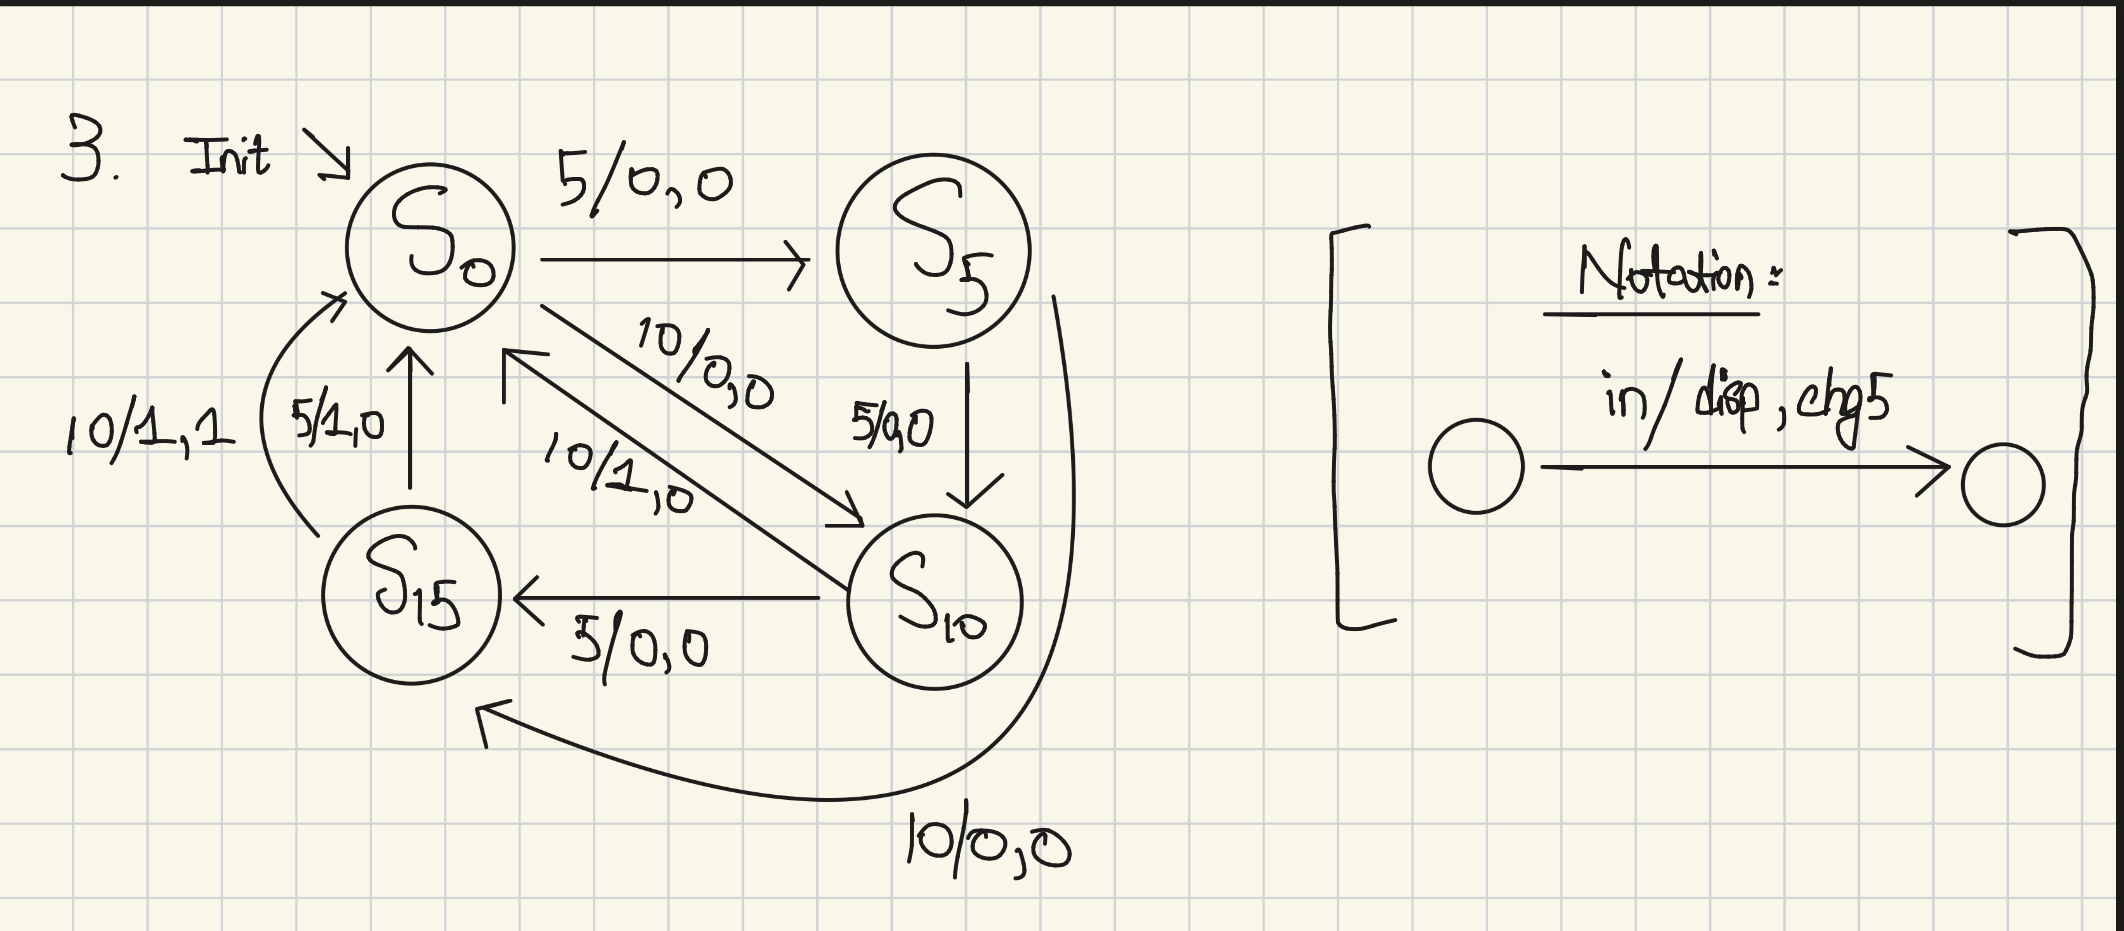 3. Init
S0
5/0,0
S5
10/0,0
10/1,1
5/1,0
10/1,0
5/0,0
S15
5/0,0
S10
10/0,0
Notation:
in/disp, chg5